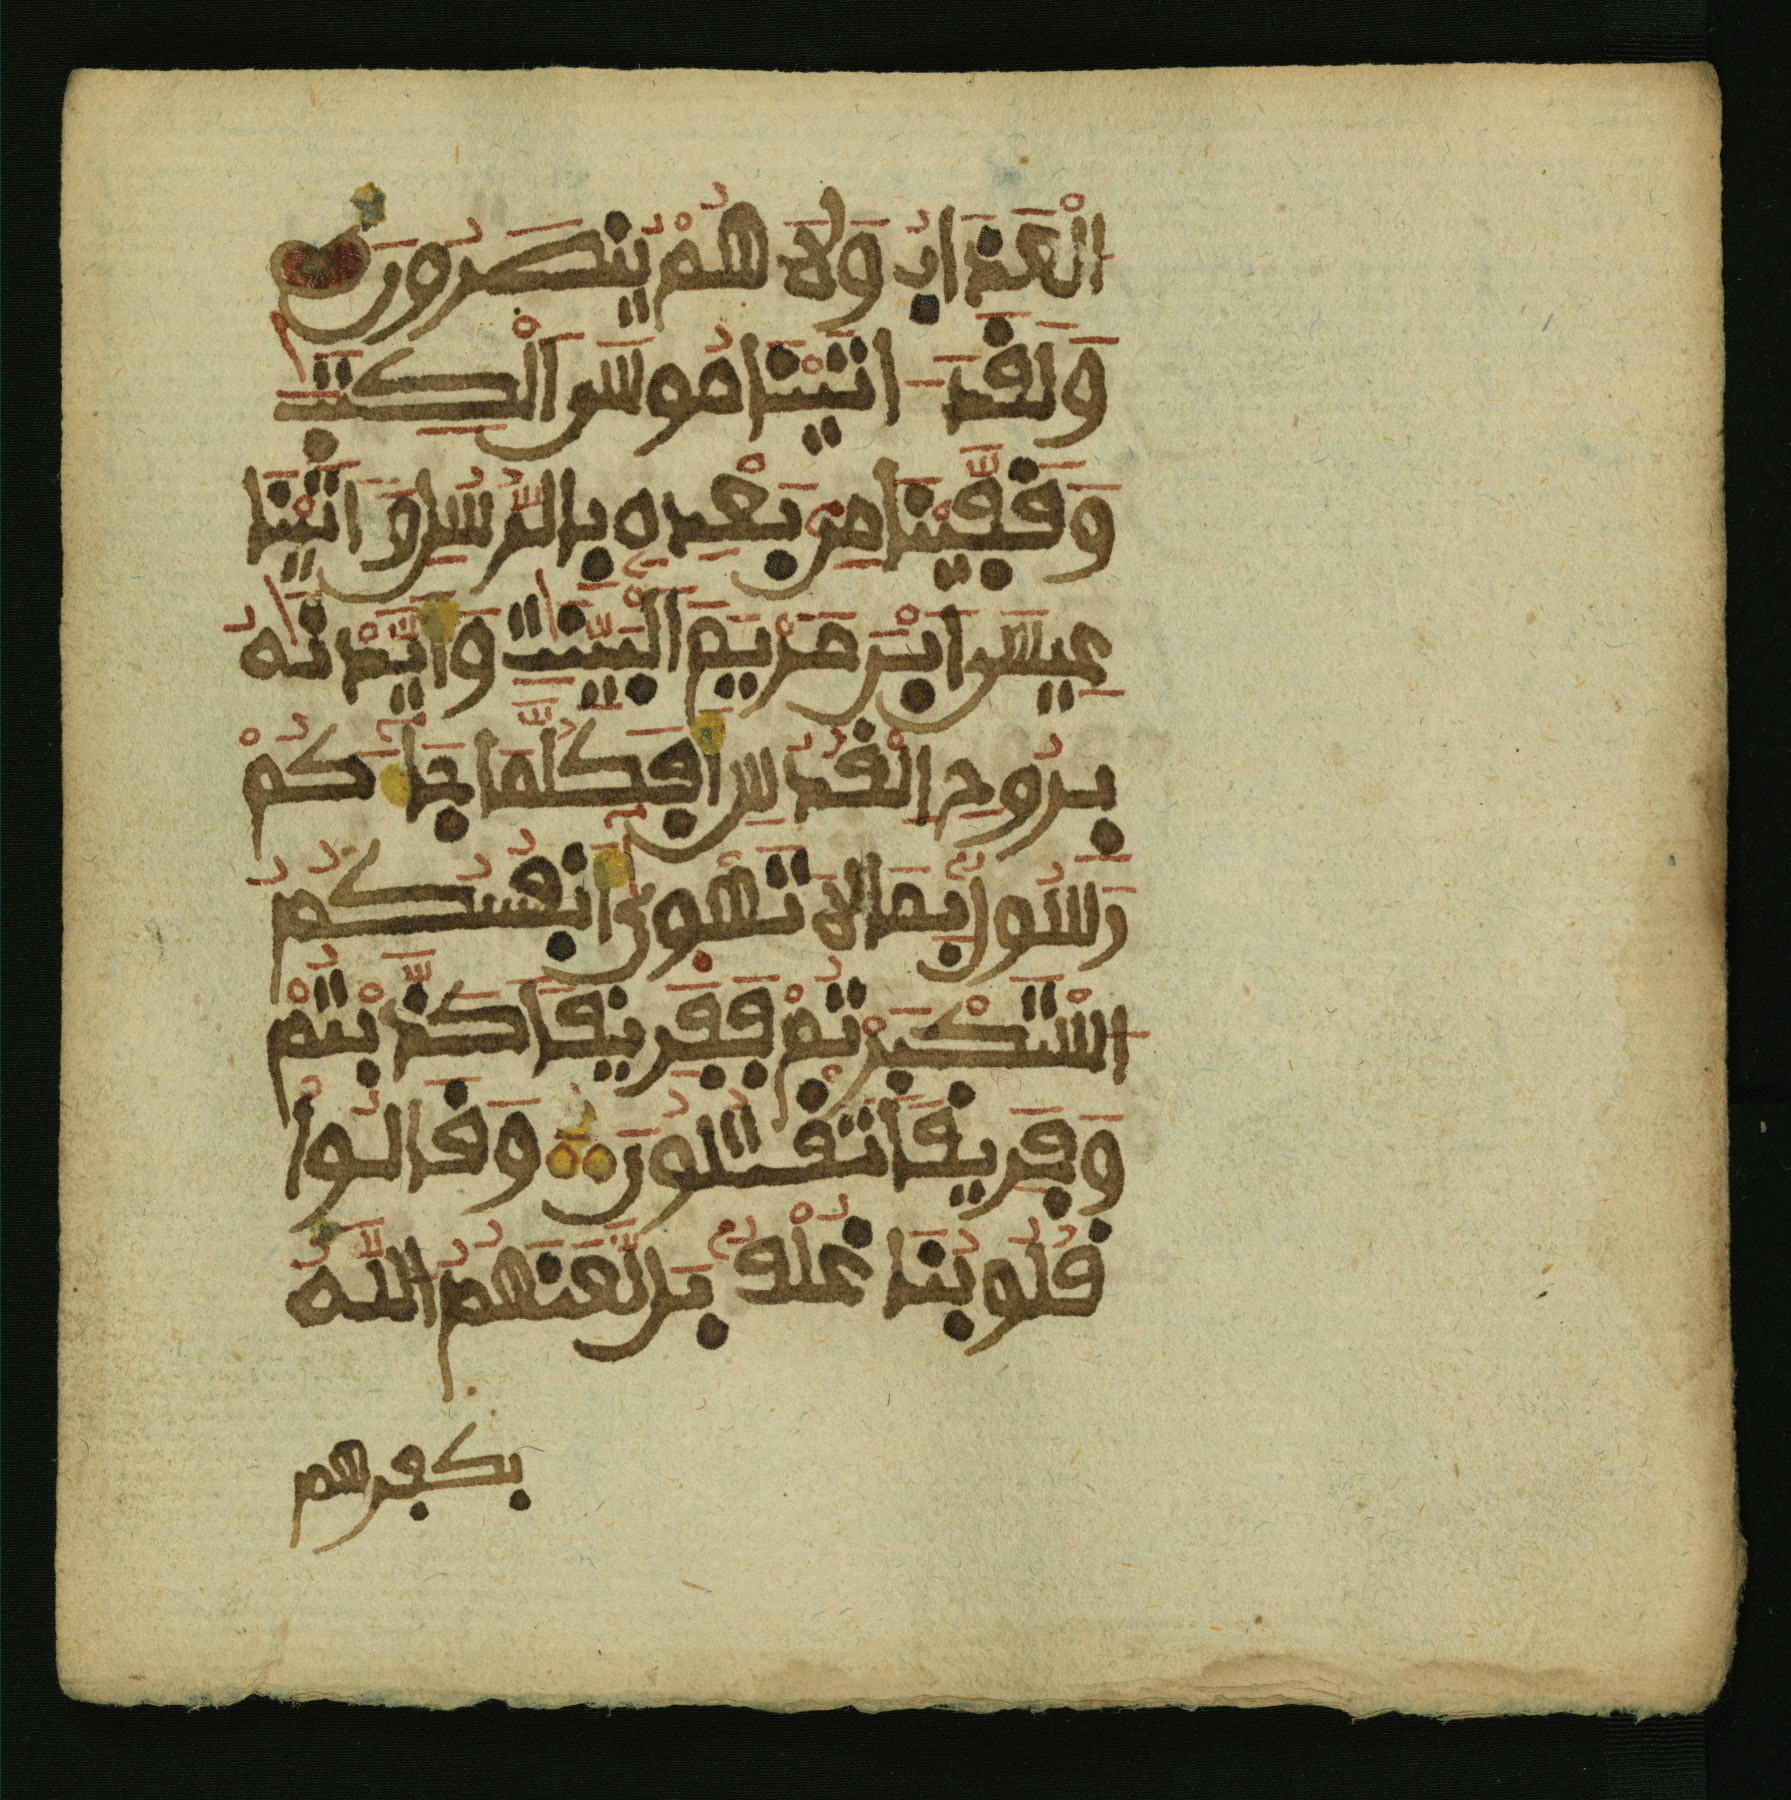 اَ۬لْعَذَابُ وَلَا هُمْ يُنصَرُونَ
وَلَقَدَ اتَيْنَا مُوسَي اَ۬لْكِتَٰبَ
وَقَفَّيْنَا مِنۢ بَعْدِهِۦ بِالرُّسُلِ وَءَاتَيْنَا
عِيسَي اَ۪بْنَ مَرْيَمَ اَ۬لْبَيِّنَٰتِ وَأَيَّدْنَٰهُ
بِرُوحِ اِ۬لْقُدُسِ أَفَكُلَّمَا جَآءَكُمْ
رَسُولُۢ بِمَا لَا تَهْوَىٰٓ أَنفُسُكُمُ
اُ۪سْتَكْبَرْتُمْ فَفَرِيقاً كَذَّبْتُمْ
وَفَرِيقاً تَقْتُلُونَ وَقَالُوا
قُلُوبُنَا غُلْفُۢ بَل لَّعَنَهُمُ اُ۬للَّهُ
بكفرهم